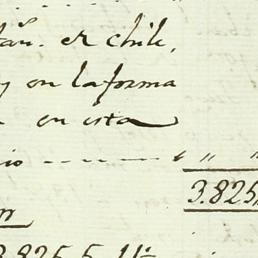 er chile,
y en la forma
en esta
io ------ " "
3.825,
3.825,5,11